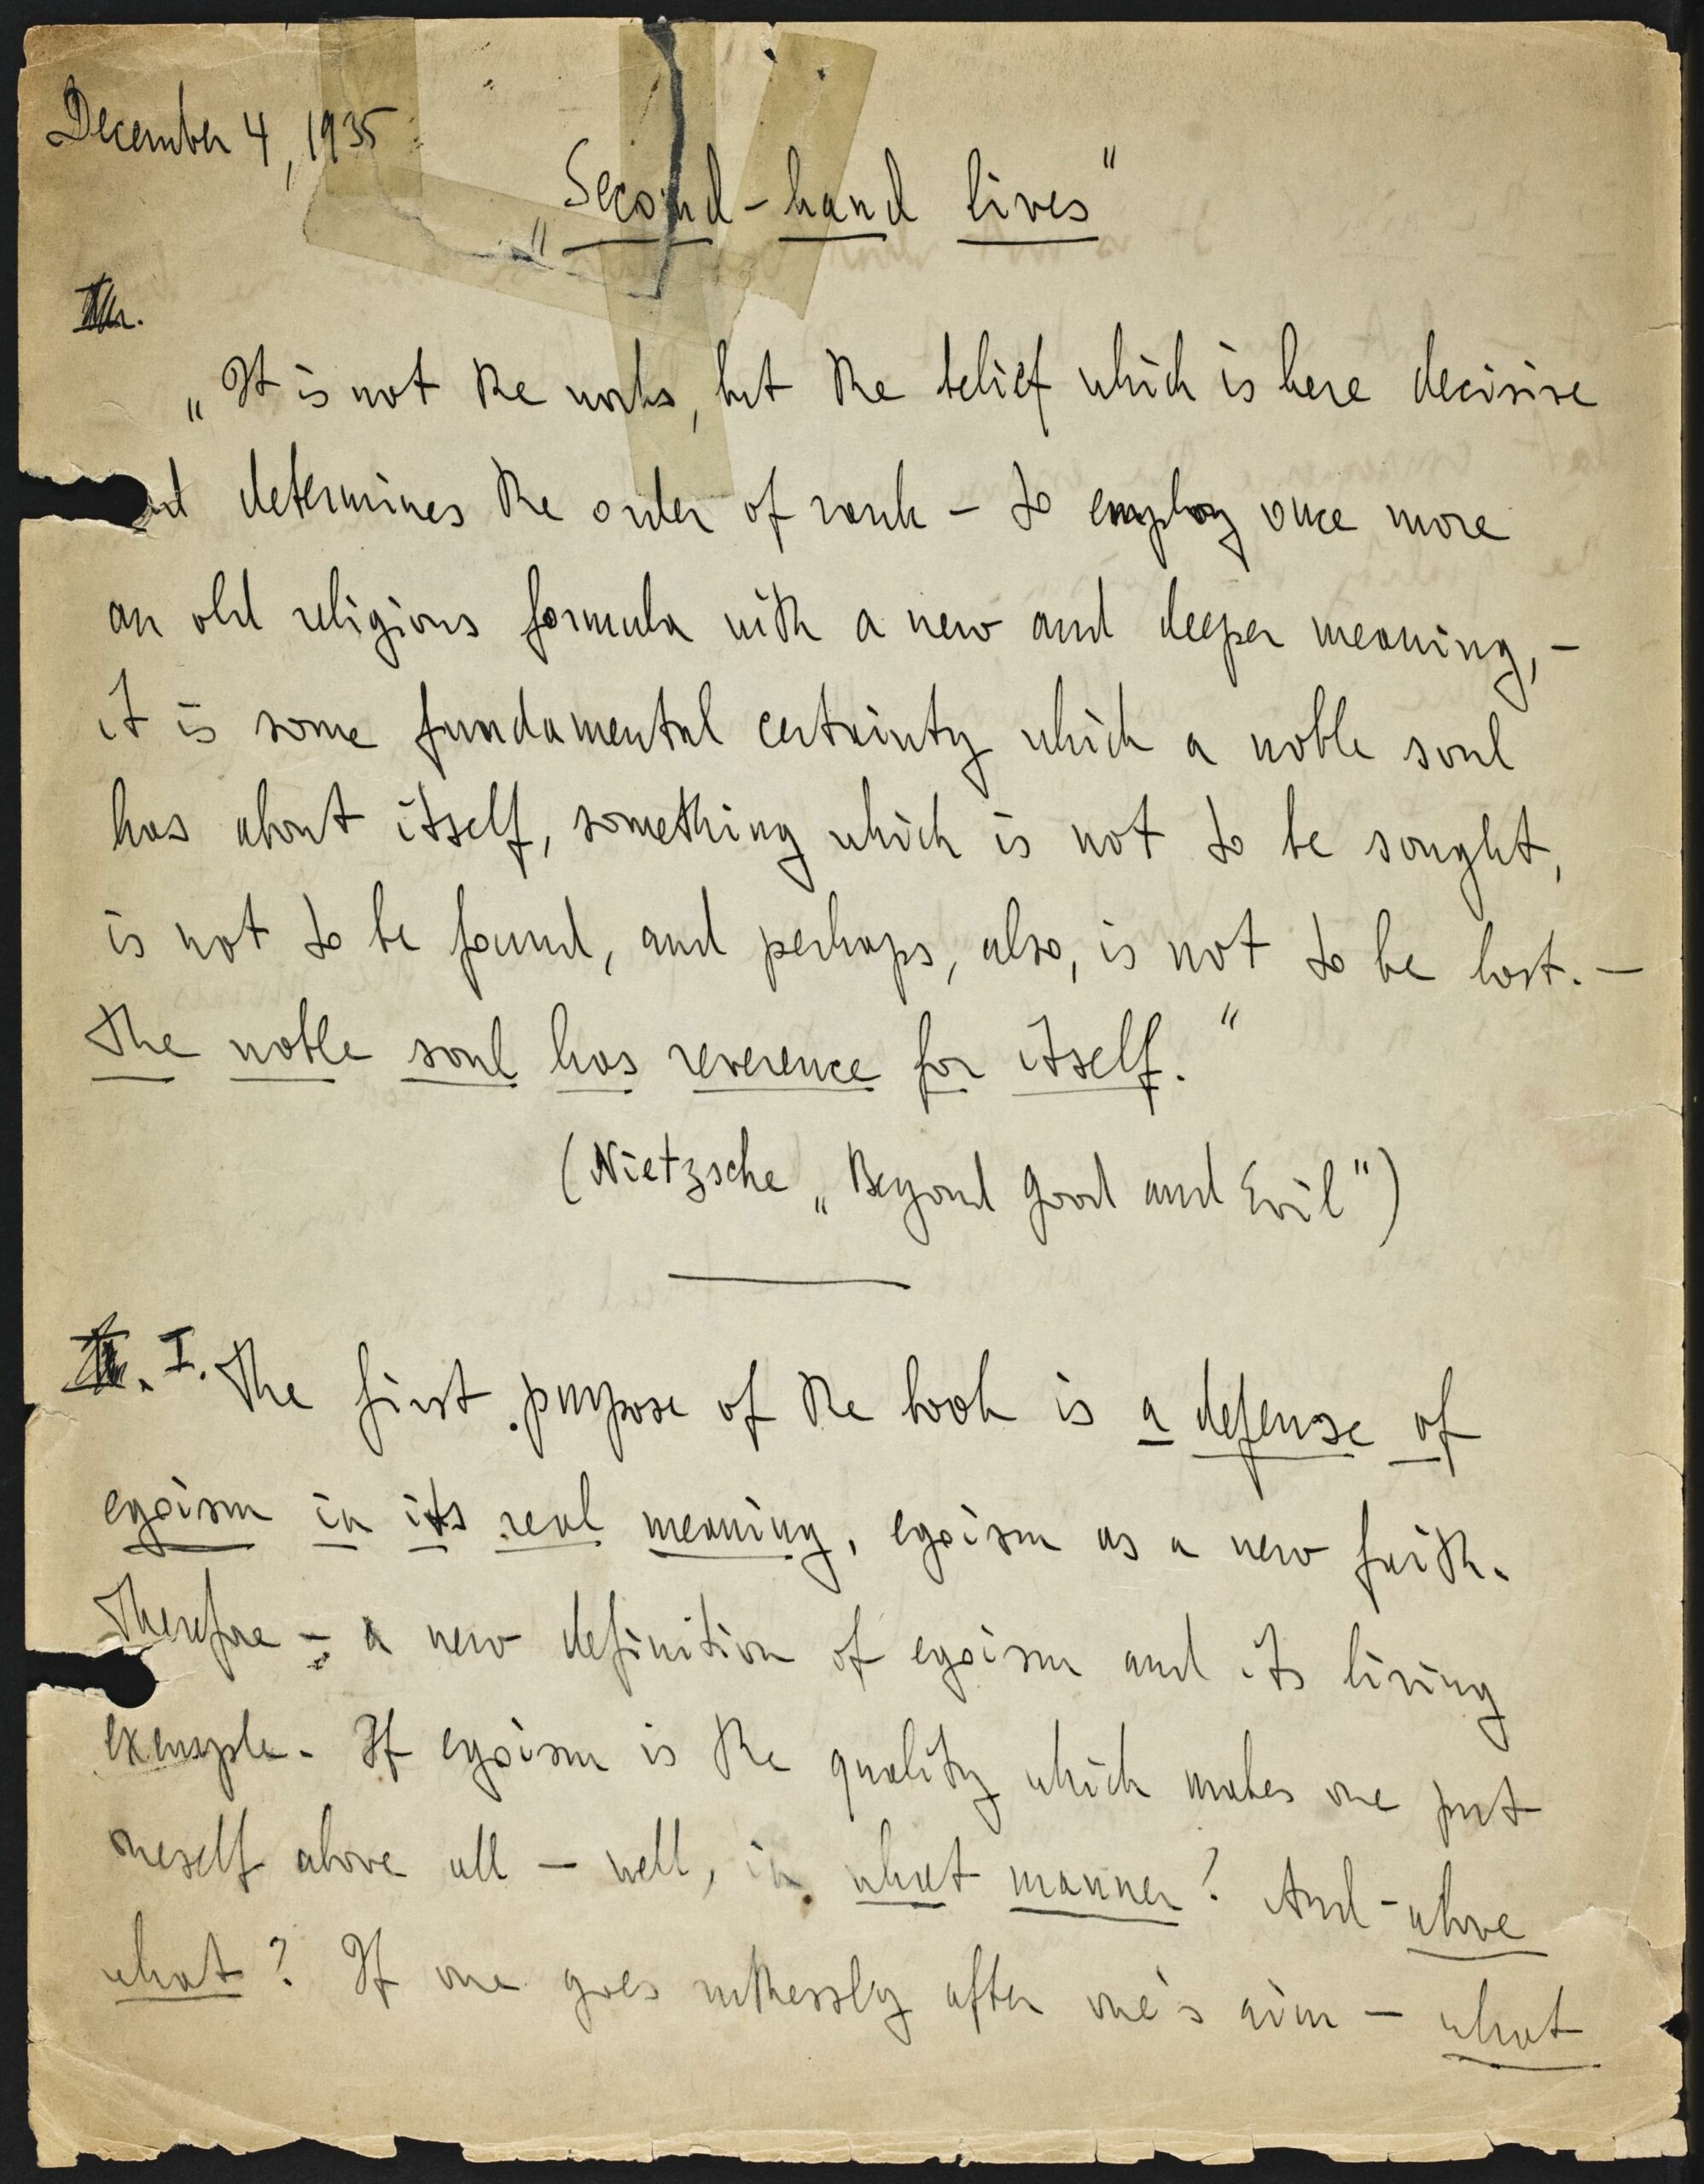 December 4, 1935
„Second-hand lives"
„It is not the works, but the belief which is here decisive
and determines the order of rank – to employ once more
an old religious formula with a new and deeper meaning, –
it is some fundamental certainty which a noble soul
has about itself, something which is not to be sought,
is not to be found, and perhaps, also, is not to be lost. –
The noble soul has reverence for itself."
(Nietzsche „Beyond Good and Evil")
I. The first purpose of the book is a defense of
egoism in its real meaning, egoism as a new faith.
Therefore – a new definition of egoism and its living
example. If egoism is the quality which makes one put
oneself above all – well, in what manner? And – above
what? If one goes ruthlessly after one's aim – what